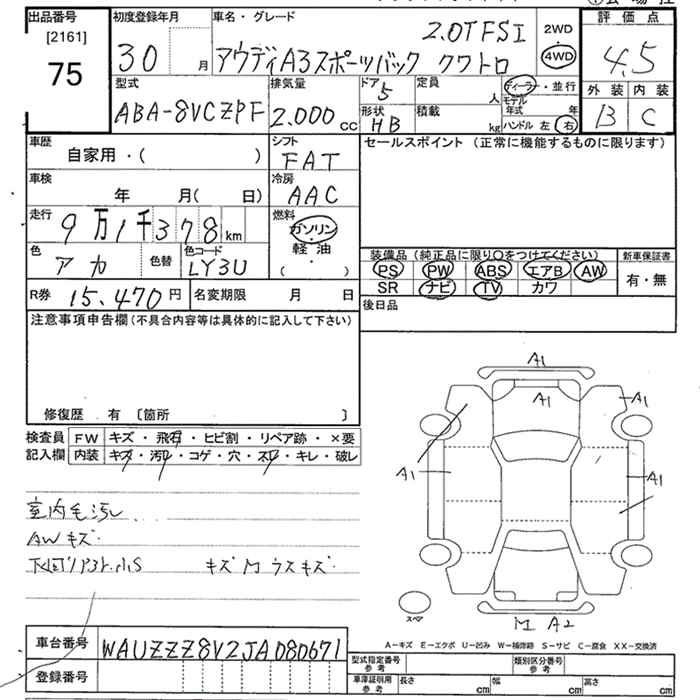 出品番号
[2161]
75
初度登録年月
30 月
車名・グレード
2.0TFSI
アウディA3スポーツバック クワトロ
2WD
4WD
評価点
4.5
外装 内装
B C
型式
ABA-8VCZPF
排気量
2.000 cc
ドア 5
形状 HB
定員 人
積載 kg
ディーラー・並行
モデル年式 年
ハンドル 左 右
車歴
自家用・( )
シフト
FAT
車検
年 月( 日)
冷房
AAC
走行
9万1千378km
燃料
ガソリン
・
軽油
( )
色
アカ
色替
色コード
LY3U
R券 15.470円
名変期限 月 日
セールスポイント (正常に機能するものに限ります)
装備品(純正品に限り○をつけてください)
PS PW ABS エアB AW
SR ナビ TV カワ
新車保証書
有・無
後日品
注意事項申告欄(不具合内容等は具体的に記入して下さい)
修復歴 有 〔箇所 〕
検査員記入欄
FW キズ・飛石・ヒビ割・リペア跡・×要
内装 キズ・汚れ・コゲ・穴・スレ・キレ・破レ
室内毛汚レ
AWキズ
キズM ウスキズ
A1
A1
A1
A1
A1
スペア
M A2
A−キズ E−エクボ U−凹み W−補修跡 S−サビ C−腐食 XX−交換済
車台番号 WAUZZZ8V2JA080671
登録番号
型式指定番号 参考
類別区分番号 参考
車庫証明用 参考
長さ cm 幅 cm 高さ cm